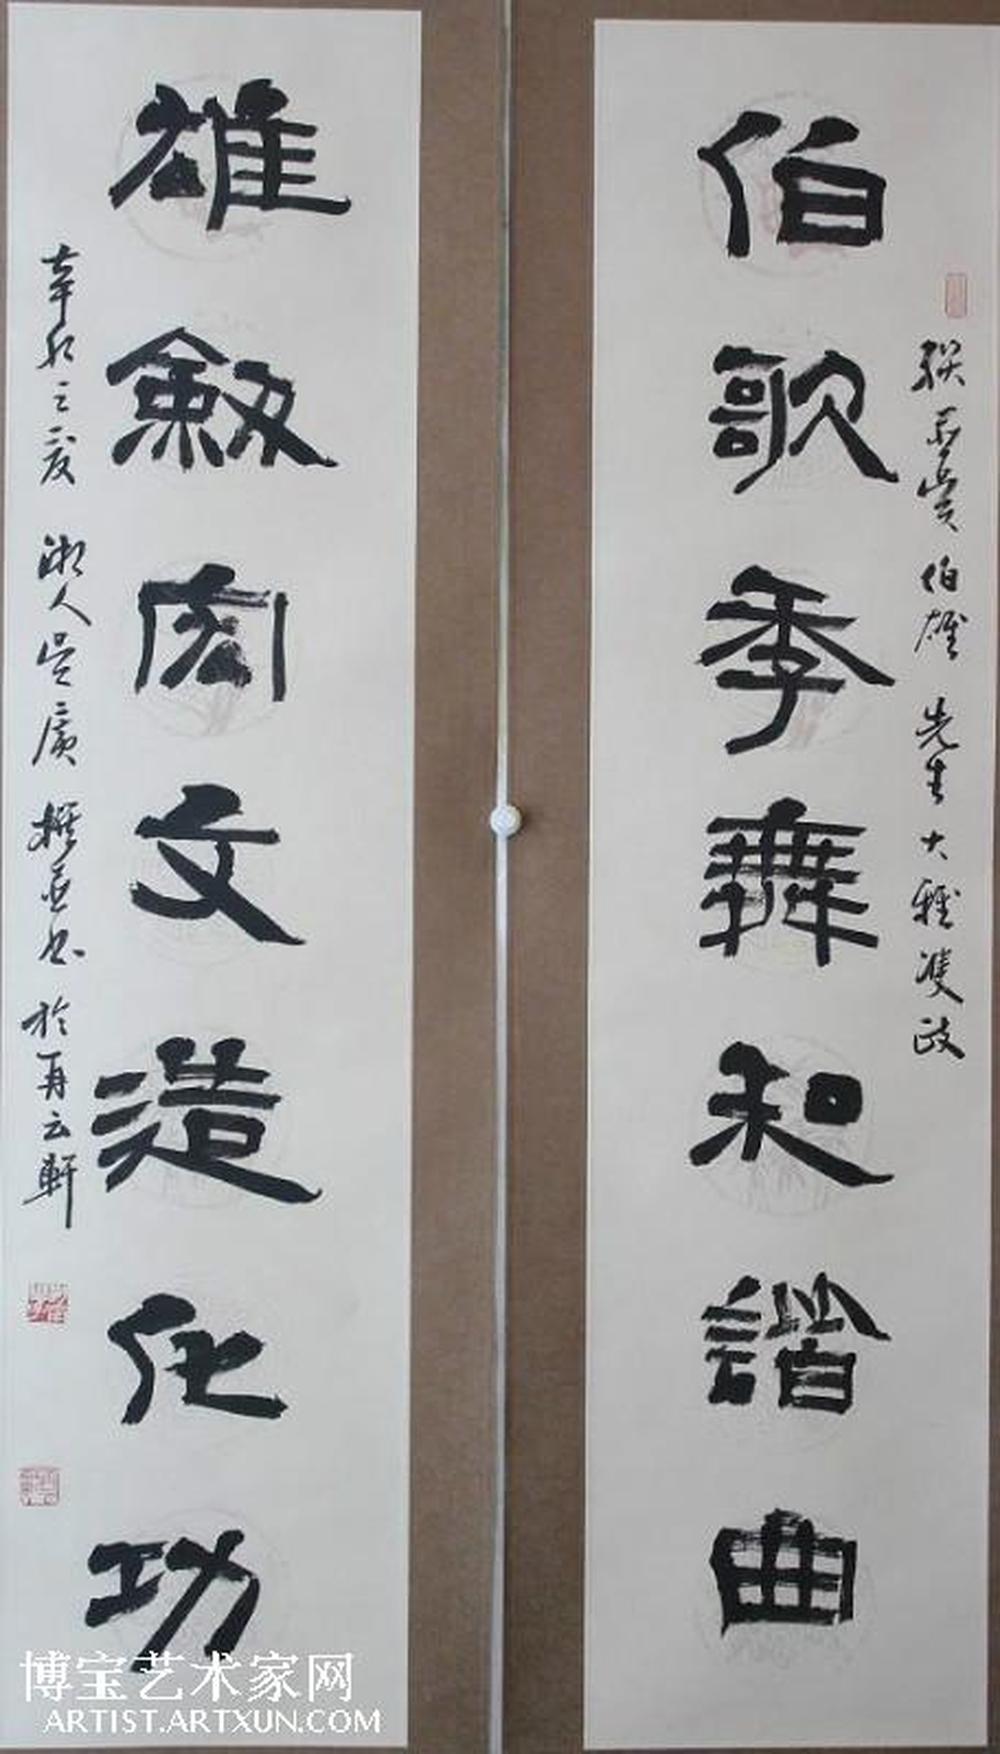 伯歌季舞和諧曲
伯雄先生大雅雙政
雄叙宏文造化功
辛卯之夏 湘人吴廣 撰並书 於再云軒
博宝艺术家网
ARTIST.ARTXUN.COM